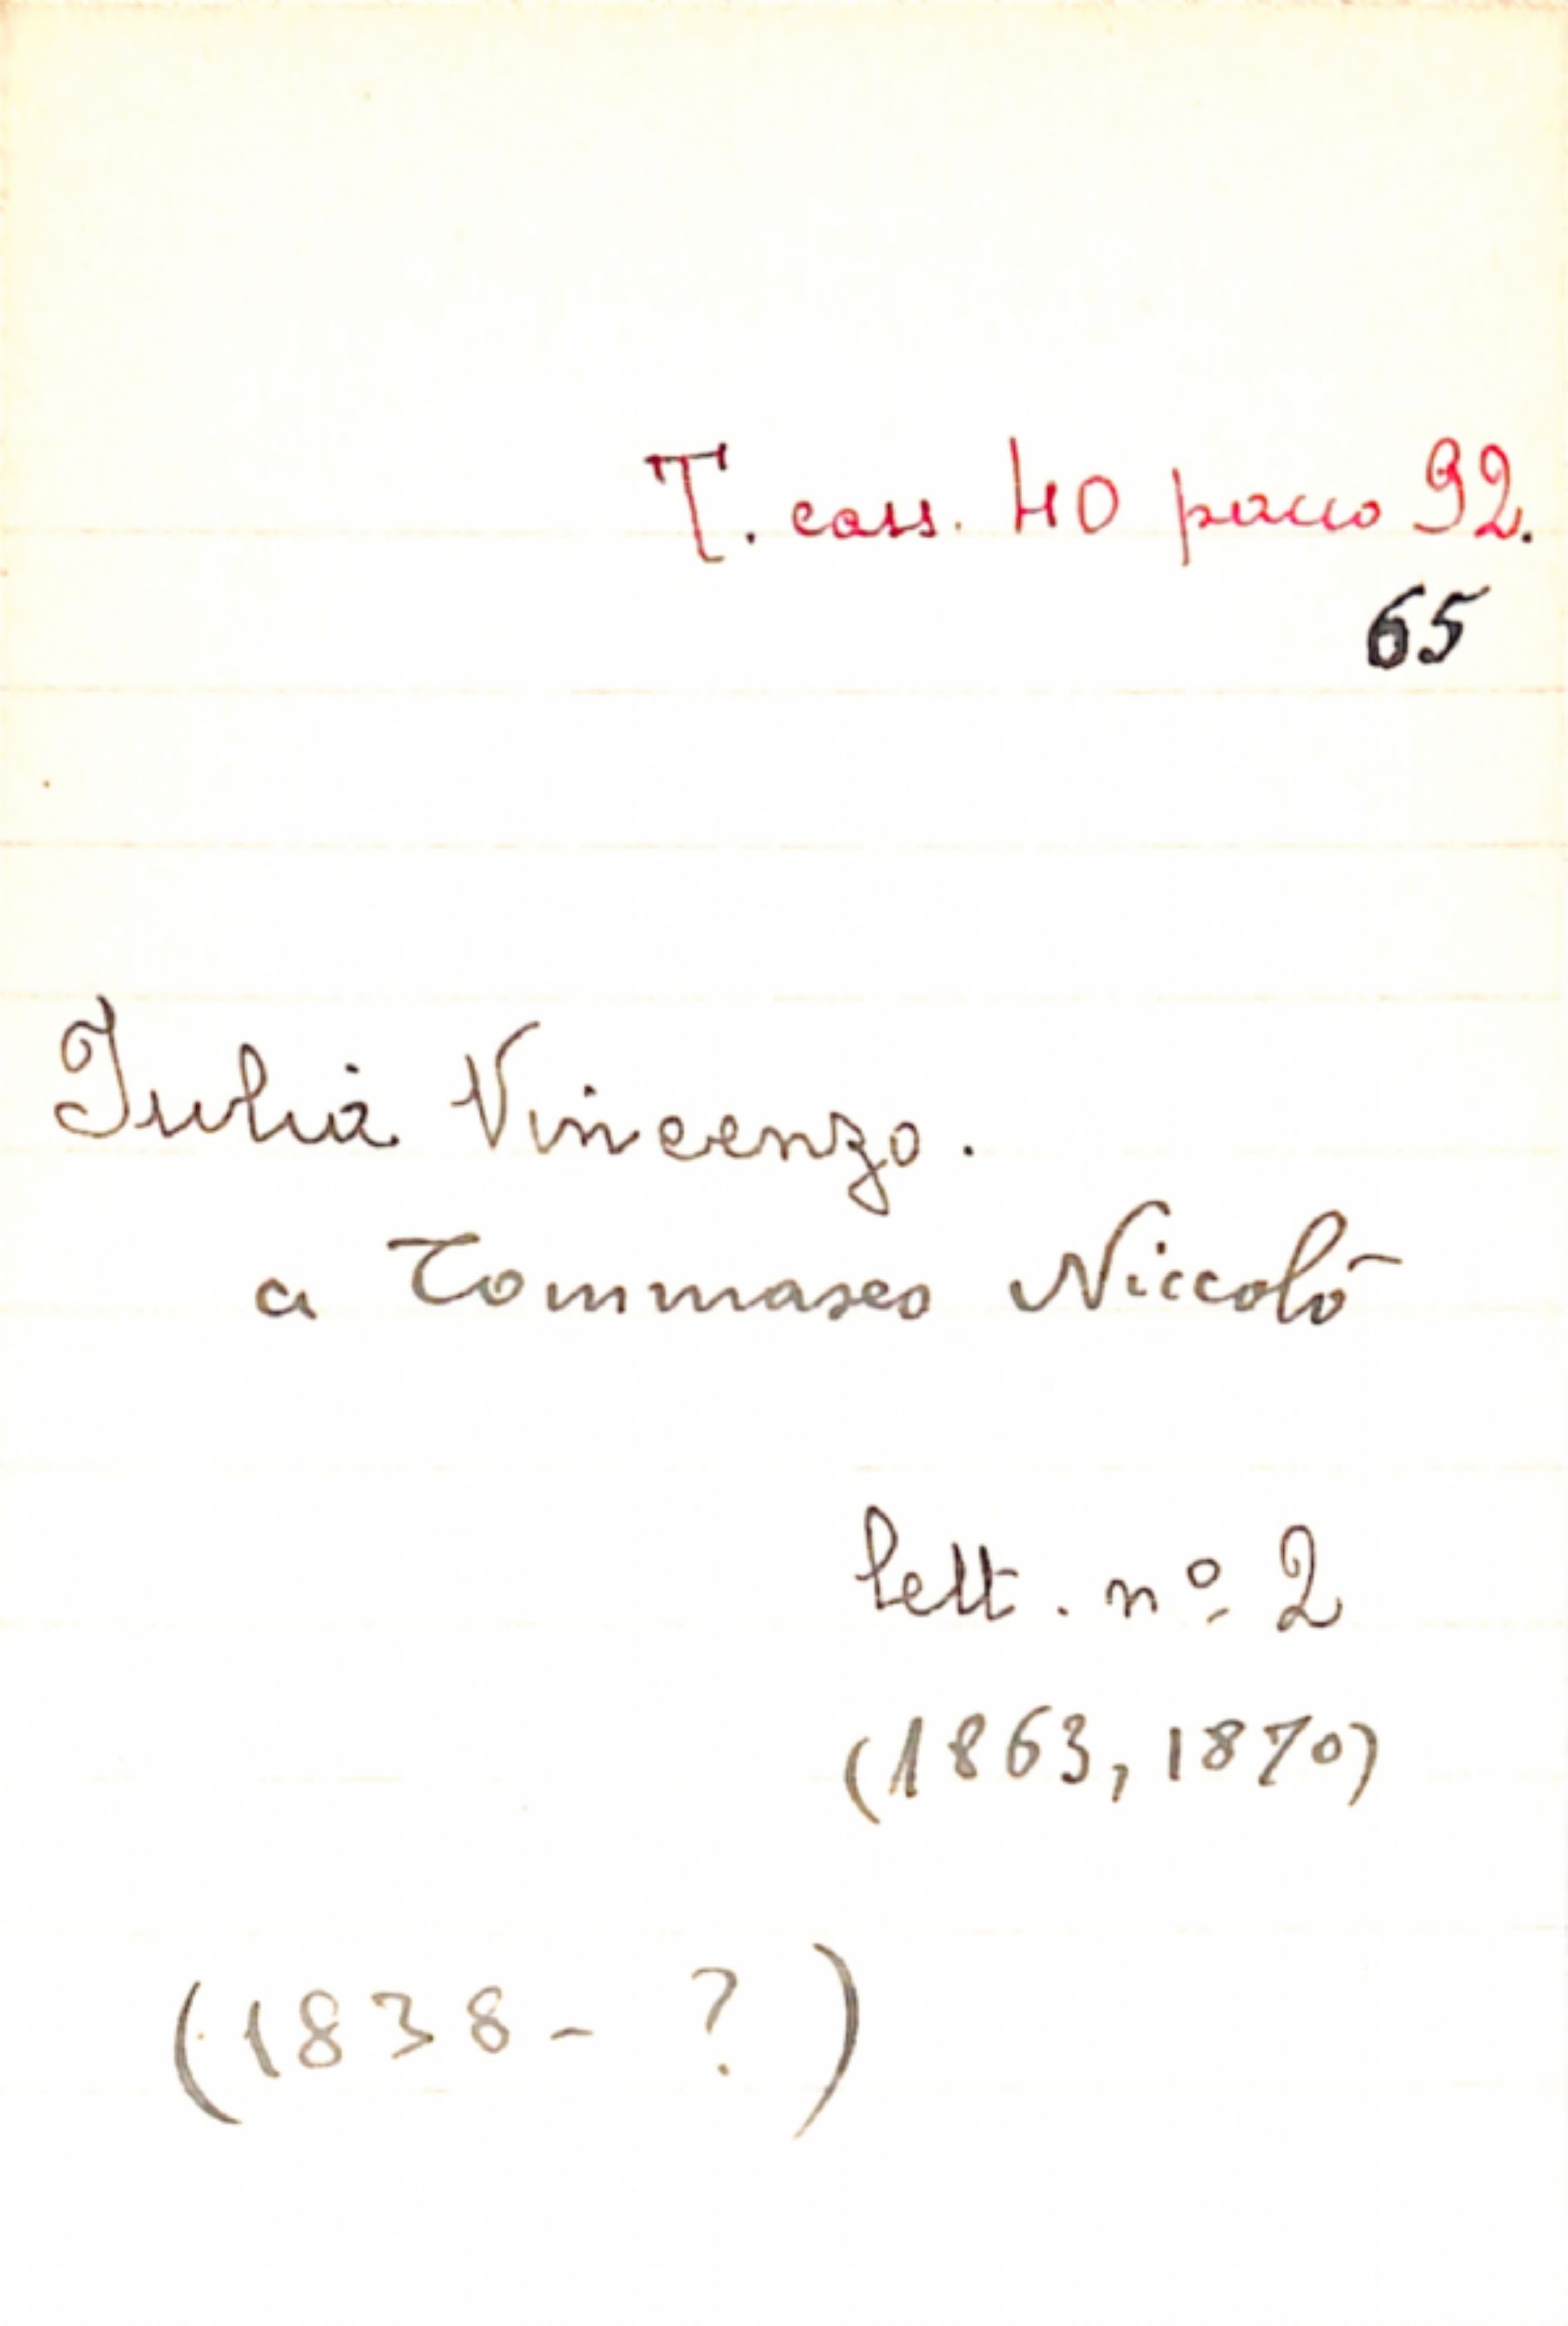 T. cass. 40 pacco 92.
65
Julia Vincenzo.
a Tommaseo Niccolò
lett. nº 2
(1863, 1870)
(1838 - ?)